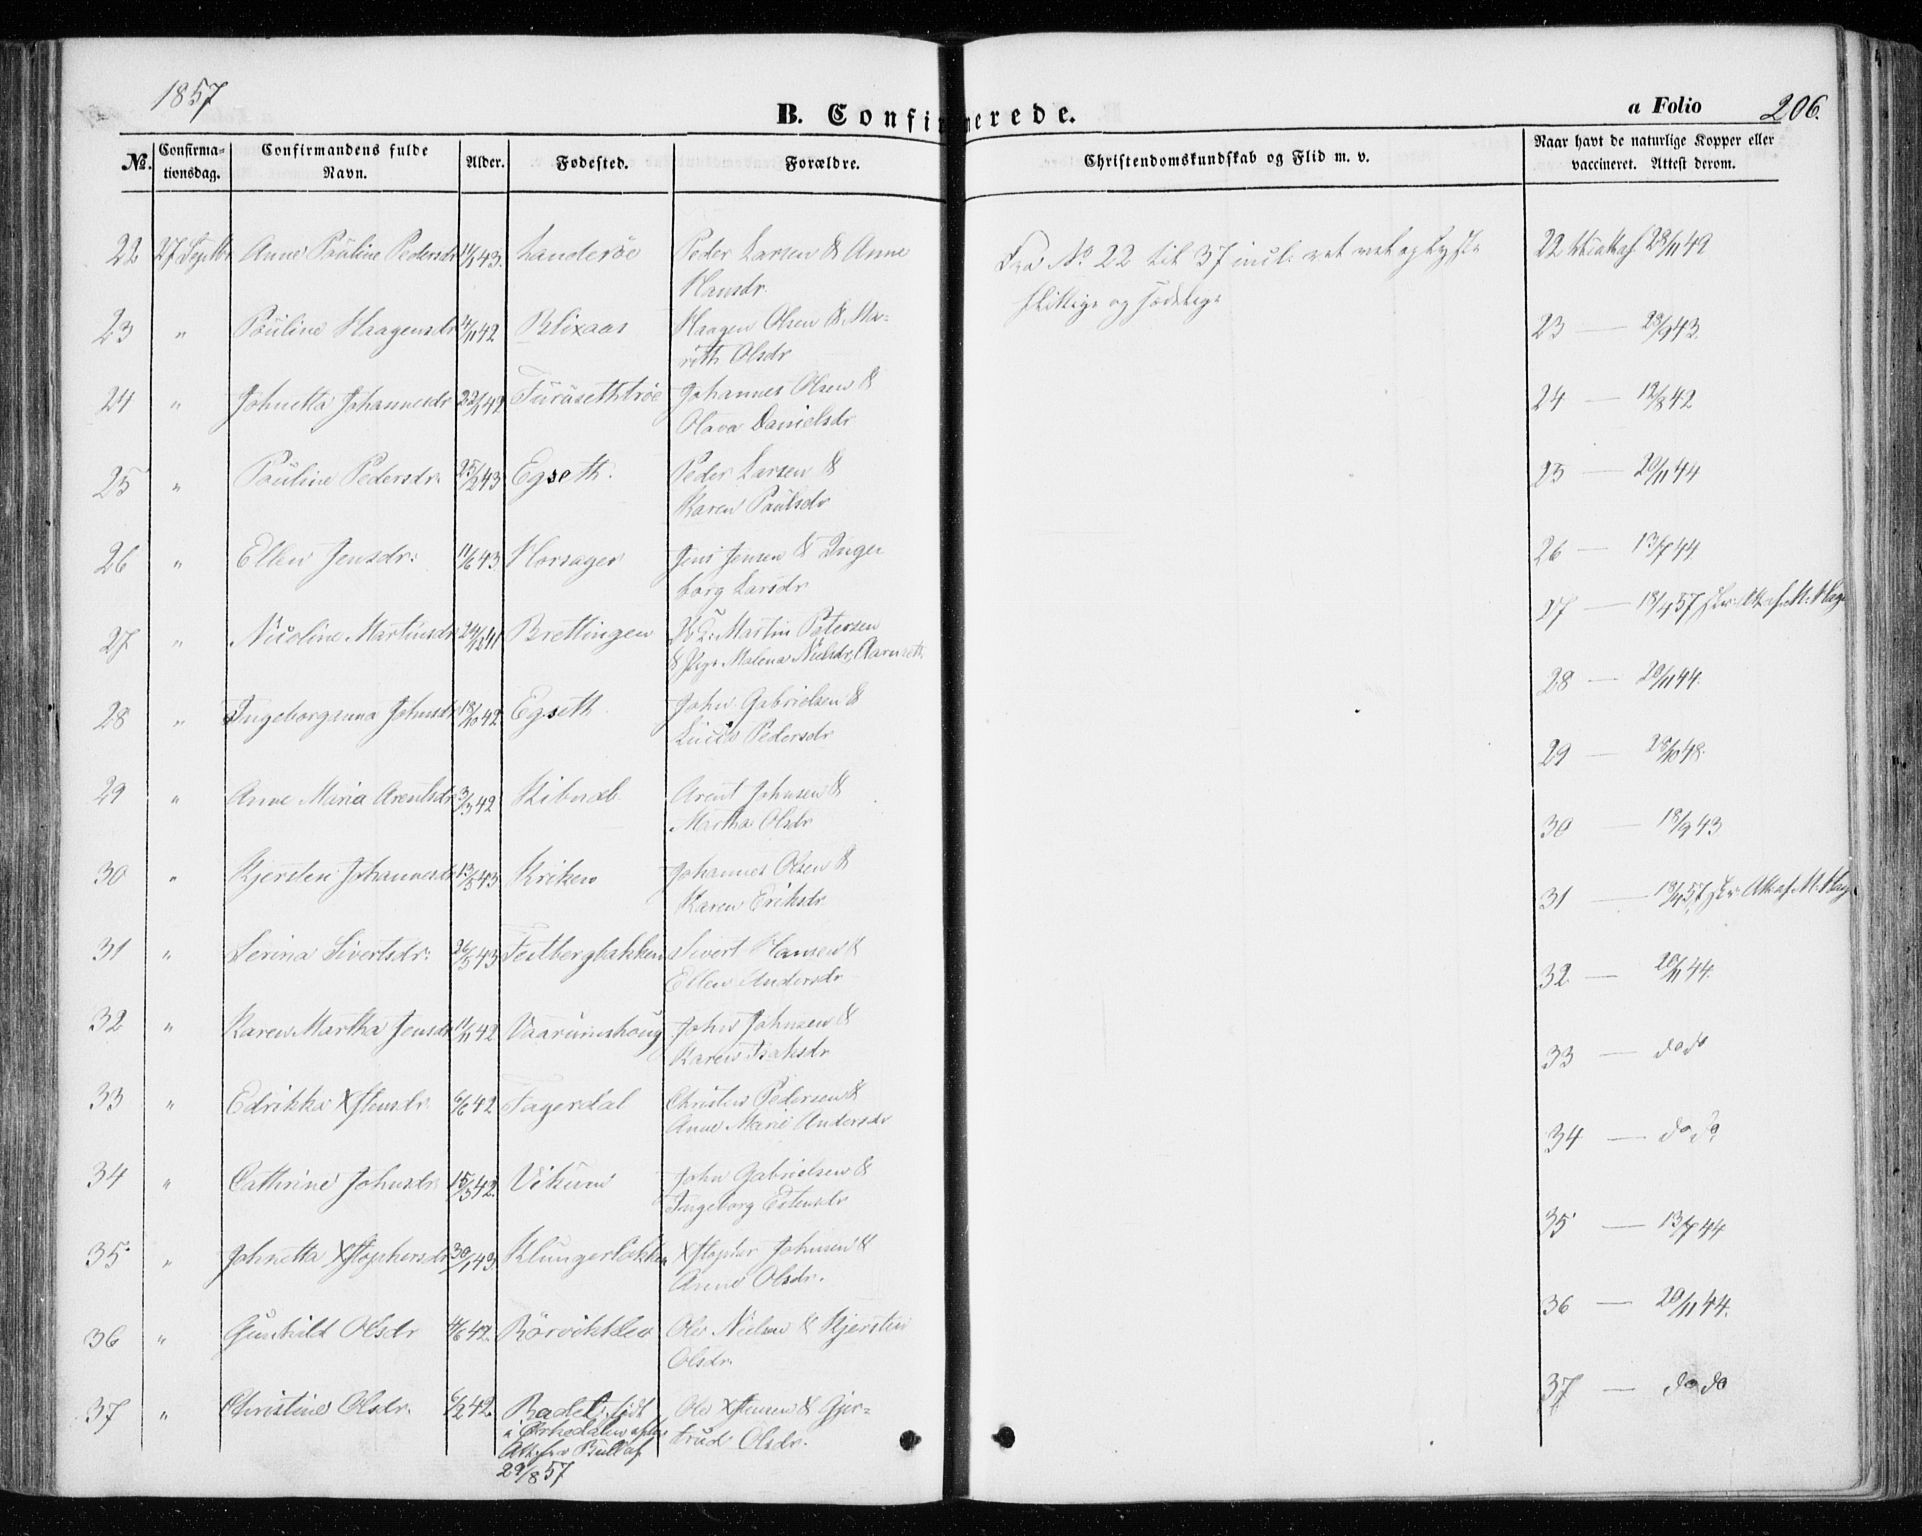 1857
B. Confirmerede.
a Folio 206.
No. Confirmationsdag. Confirmandens fulde Navn. Alder. Fødested. Forældre. Christendomskundskab og Flid m. v. Naar havt de naturlige Kopper eller vaccineret. Attest derom.
22 27 Septbr Anne Pauline Pedersdr 43. Peder Larsen & Anne
Hansdr.
Fra No 22 til 37 incl:
flittige og sædelige
22 28/11 49
23 " Pauline Haagensdr 42 Blixaas Haagen Olsen & Ma-
reth Olsdr
23 — 29/9 43.
24 " Johnetta Johannesdr 22/1 42 Furusethtrøe Johannes Olsen &
Olava Danielsdr
24 — 12/8 42
25 " Pauline Pedersdr. 25/2 43 Egseth. Peder Larsen &
Karen Paulsdr
25 — 20/11 44
26 " Ellen Jensdr: 11/6 43 Horsager Jens Jensen & Inge
borg Larsdr
26 — 13/7 44
27 " Nicoline Martinsdr 24/12 41 Brettingen Martin Petersen
& Pige Malena Nielsdr, Aarnseth
27 — 18/4 57
28 " Ingeborganna Johnsdr 18/10 42 Egseth John Gabrielsen &
Pedersdr
28 — 20/11 44.
29 " Anne Maria Arentsdr 3/3 42 Arent Johnsen &
Martha Olsdr
29 — 28/10 48.
30 " Kjersten Johannesdr 13/5 43 Kriken Johannes Olsen &
Karen Eriksdr
30 — 18/9 43
31 " Serina Sivertsdr: 26/5 43 Sivert Hansen &
Ellen Andersdr
31 — 18/4 57
32 " Karen Martha Jensdr 11/11 42 John Johnsen &
Karen Isaksdr
32 — 20/11 44.
33 " Edrikka Xstensdr. 6/6 42 Fagerdal Christen Pedersen &
Anne Marie Andersdr
33 — do do
34 " Cathrine Johnsdr: 15/5 42. Vikum John Gabrielsen &
Ingeborg Estensdr
34 — do do
35 " Johnetta Xstophersdr 30/1 43. Klungerbakken Xstopher Johnsen &
Anne Olsdr.
35 — 13/7 44
36 " Gunhild Olsdr 42. Ole Nielsen & Kjersten
Olsdr.
36 — 20/11 44.
37 " Christine Olsdr. 6/2 42. Badet, født Ole Xstensen & Gjer-
i Orkedalen trud Olsdr.
29/8 57
37 — do do